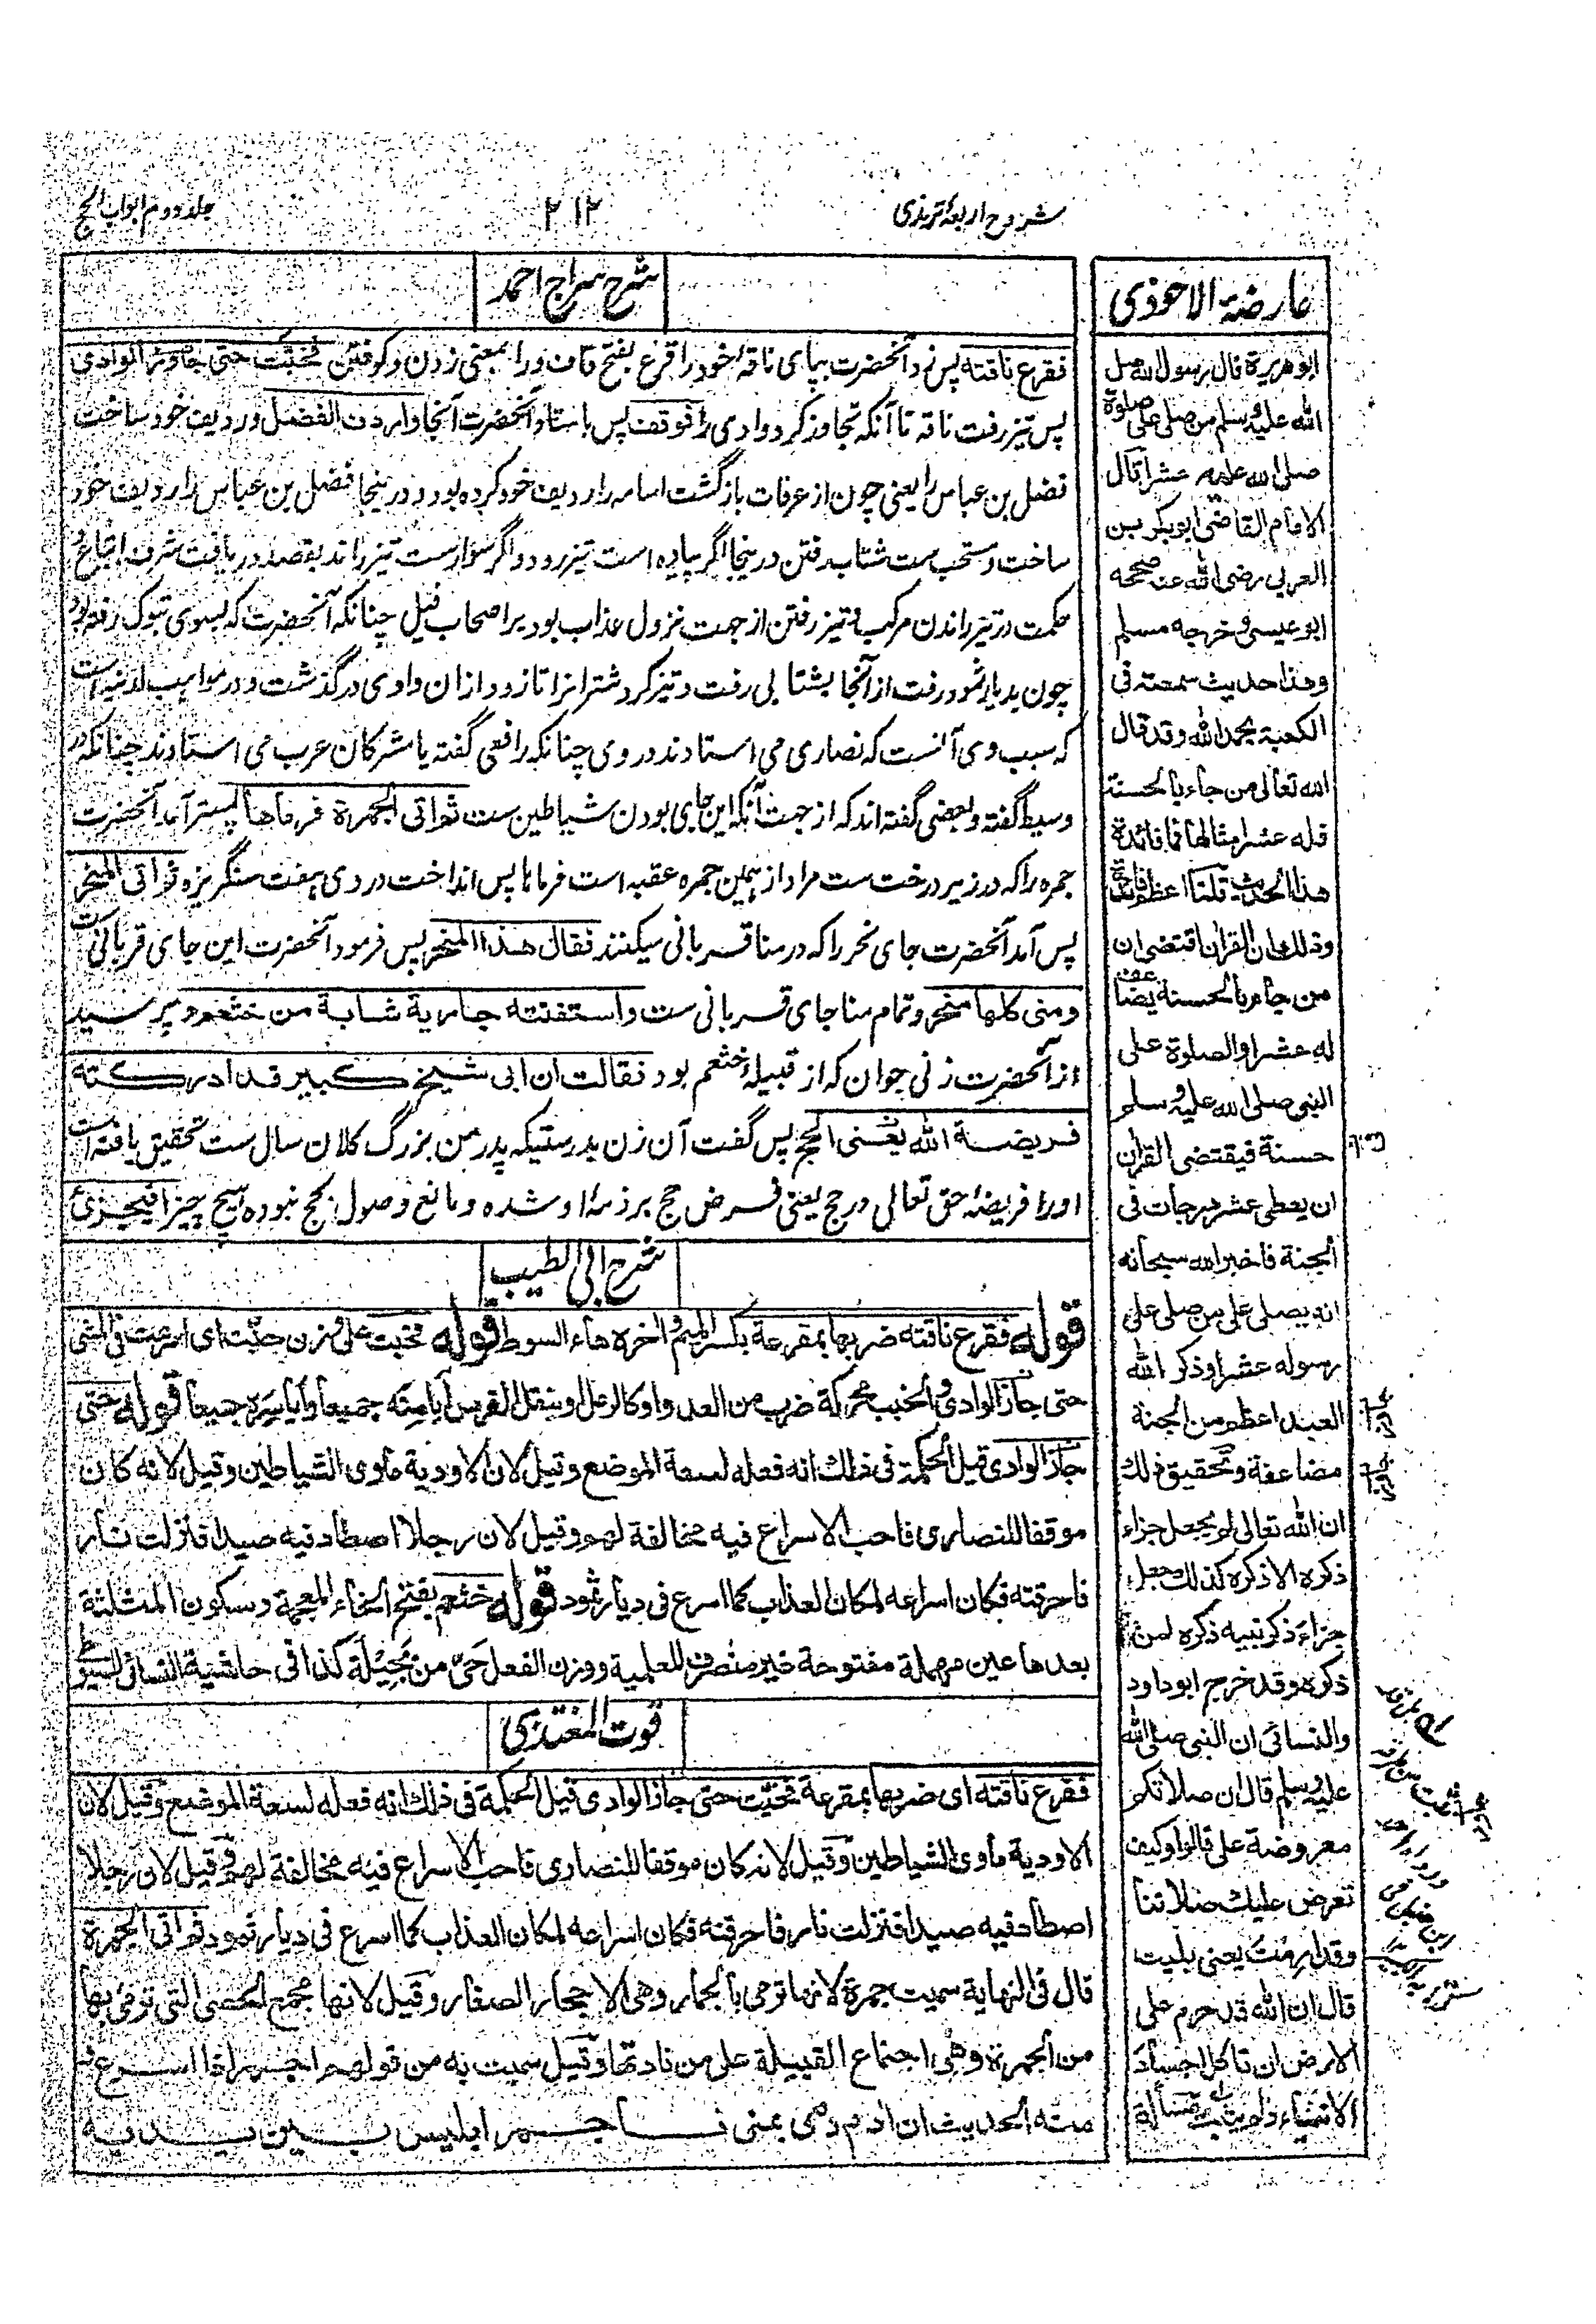 شروح اربعهٔ ترمذی
۲۱۲
جلد دوم ابواب الحج
عارضة الاحوذی
ابو هریرة قال رسول الله صلی
الله علیه وسلم من صلی علی صلوة
صلی الله علیه عشرا قال
الامام القاضی ابو بکر بن
العربی رضی الله عنه صححه
ابو عیسی وخرجه مسلم
وهذا حدیث سمعته فی
الکعبة بحمد الله وقد قال
الله تعالی من جاء بالحسنة
فله عشر امثالها فما فائدة
هذا الحدیث قلنا اعظم فائدة
وذلك ان القران اقتضی ان
من جاء بالحسنة یضاعف
له عشرا والصلوة علی
النبی صلی الله علیه وسلم
حسنة فیقتضی القران
ان یعطی عشر درجات فی
الجنة فاخبر الله سبحانه
انه یصلی علی من صلی علی
رسوله عشرا وذکر الله
العبد اعظم من الجنة
مضاعفة وتحقیق ذلك
ان الله تعالی لم یجعل جزاء
ذکره الا ذکره کذلك جعل
جزاء ذکر نبیه ذکره لمن
ذکره وقد خرج ابو داود
والنسائی ان النبی صلی الله
علیه وسلم قال ان صلاتکم
معروضة علی قالوا وکیف
تعرض علیك صلاتنا
وقد ارمت یعنی بلیت
قال ان الله قد حرم علی
الارض ان تاکل اجساد
الانبیاء
شرح سراج احمد
فقرع ناقته پس زد آنحضرت بپای ناقهٔ خود را قرع بفتح قاف ورا بمعنی زدن و کوفتن فخبت حتی جاوز الوادی
پس تیز رفت ناقه تا آنکه تجاوز کرد وادی را فوقف پس باستاد آنحضرت آنجا واردف الفضل وردیف خود ساخت
فضل بن عباس را یعنی چون از عرفات بازگشت اسامه را ردیف خود کرده بود و درینجا فضل بن عباس را ردیف خود
ساخت و مستحب ست شتاب رفتن درینجا اگر پیاده است تیز رود و اگر سوار ست تیز راند بقصد دریافت شرف اتباع و
حکمت در تیز راندن مرکب و تیز رفتن از جهت نزول عذاب بود بر اصحاب فیل چنانکه آنحضرت که بسوی تبوک رفته بود
چون بدیار ثمود رفت از آنجا بشتابی رفت و تیز کرد شتر انرا تا زود ازان وادی درگذشت و در مواهب لدنیه است
که سبب وی آنست که نصاری می استادند در وی چنانکه رافعی گفته یا مشرکان عرب می استادند چنانکه در
وسیط گفته و بعضی گفته اند که از جهت آنکه این جای بودن شیاطین ست ثم اتی الجمرة فرماها پستر آمد آنحضرت
جمره را که در زیر درخت ست مراد از همین جمره عقبه است فرماها پس انداخت در وی هفت سنگریزه ثم اتی المنحر
پس آمد آنحضرت جای نحر را که در منا قربانی میکنند فقال هذا المنحر پس فرمود آنحضرت این جای قربانی ست
ومنی کلها منحر و تمام منا جای قربانی ست واستفتته جاریة شابة من خثعم و پرسید
از آنحضرت زنی جوان که از قبیلهٔ خثعم بود فقالت ان ابی شیخ کبیر قد ادرکته
فریضة الله یعنی الحج پس گفت آن زن بدرستیکه پدر من بزرگ کلان سال ست تحقیق یافته است
اورا فریضهٔ حق تعالی در حج یعنی فرض حج بر ذمهٔ او شده و مانع وصول بحج نبوده هیچ چیز افیجزئ
شرح ابی الطیب
قوله فقرع ناقته ضربها بمقرعة بکسر المیم واخره هاء السوط قوله فخبت علی وزن حنّت ای اسرعت فی المشی
حتی جاز الوادی والخبب محرکة ضرب من العدو او کالرمل او ینقل الفرس أیامنه جمیعا وأیاسره جمیعا قوله حتی
جاز الوادی قیل الحکمة فی ذلك انه فعله لسعة الموضع وقیل لان الاودیة ماوی الشیاطین وقیل لانه کان
موقفا للنصاری فاحب الاسراع فیه مخالفة لهم وقیل لان رجلا اصطاد فیه صیدا فنزلت نار
فاحرقته فکان اسراعه لمکان العذاب کما اسرع فی دیار ثمود قوله خثعم بفتح الخاء المعجمة وسکون المثلثة
بعدها عین مهملة مفتوحة غیر منصرف للعلمیة ووزن الفعل حی من بجیلة کذا فی حاشیة النسائی للسیوطی
قوت المغتذی
فقرع ناقته ای ضربها بمقرعة فخبّت حتی جاز الوادی قیل الحکمة فی ذلك انه فعله لسعة الموضع وقیل لان
الاودیة ماوی الشیاطین وقیل لانه کان موقفا للنصاری فاحب الاسراع فیه مخالفة لهم وقیل لان رجلا
اصطاد فیه صیدا فنزلت نار فاحرقته فکان اسراعه لمکان العذاب کما اسرع فی دیار ثمود ثم اتی الجمرة
قال فی النهایة سمیت جمرة لانها ترمی بالجمار وهی الاحجار الصغار وقیل لانها مجمع الحصی التی ترمی بها
من الجمرة وهی اجتماع القبیلة علی من ناداها وقیل سمیت به من قولهم اجمر اذا اسرع
منه الحدیث ان ادم رمی بمنی فاجمر ابلیس بین یدیه